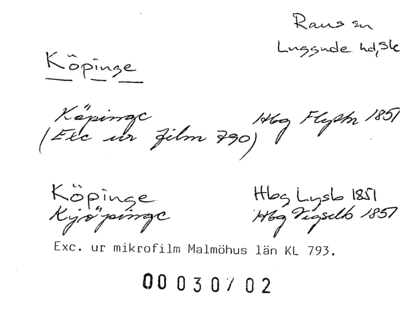 Raus sn
Luggude hd, Sk
Köpinge
Köpinge Hbg Flyttn 1851
(Exc ur film 790)
Köpinge Hbg Lysb 1851
Kjöpinge Hbg Vigselb 1851
Exc. ur mikrofilm Malmöhus län KL 793.
00030/02